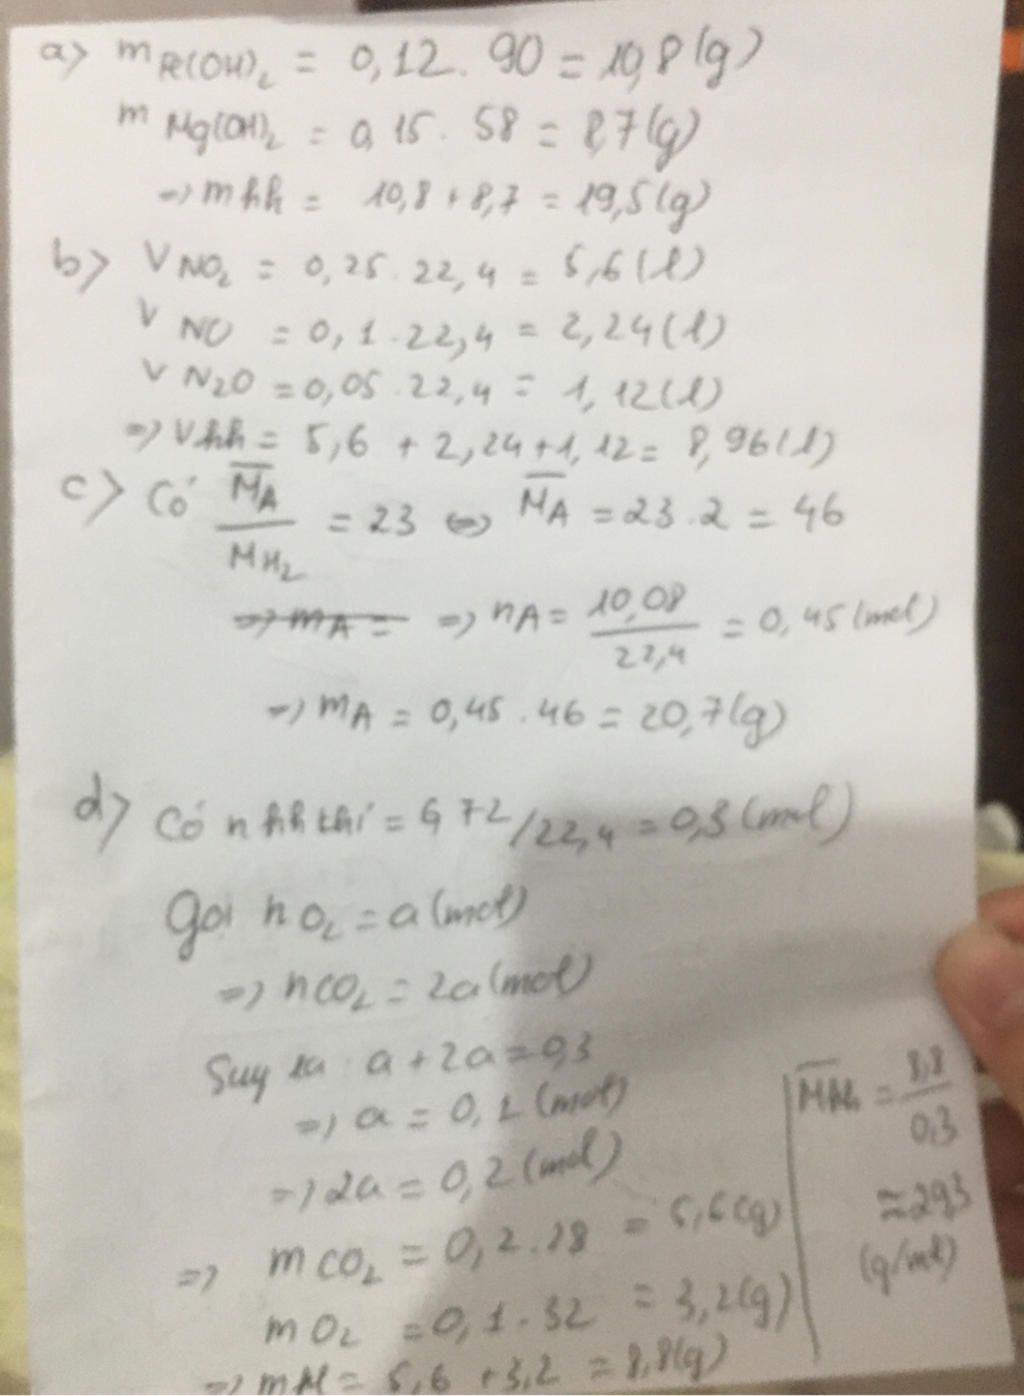 a) mFe(OH)₂ = 0,12 . 90 = 10,8 (g)
m Mg(OH)₂ = 0,15 . 58 = 8,7 (g)
=> m hh = 10,8 + 8,7 = 19,5 (g)
b) V NO₂ = 0,25 . 22,4 = 5,6 (l)
V NO = 0,1 . 22,4 = 2,24 (l)
V N₂O = 0,05 . 22,4 = 1,12 (l)
=> Vhh = 5,6 + 2,24 + 1,12 = 8,96 (l)
c) Có M̅A / MH₂ = 23 <=> M̅A = 23 . 2 = 46
=> mA = => nA = 10,08 / 22,4 = 0,45 (mol)
=> mA = 0,45 . 46 = 20,7 (g)
d) Có n hh khí = 6,72 / 22,4 = 0,3 (mol)
Gọi nO₂ = a (mol)
=> nCO₂ = 2a (mol)
Suy ra : a + 2a = 0,3
=> a = 0,1 (mol)
=> 2a = 0,2 (mol)
=> mCO₂ = 0,2 . 28 = 5,6 (g)
mO₂ = 0,1 . 32 = 3,2 (g)
=> mhh = 5,6 + 3,2 = 8,8 (g)
M̅hh = 8,8 / 0,3
≈ 29,3
(g/mol)